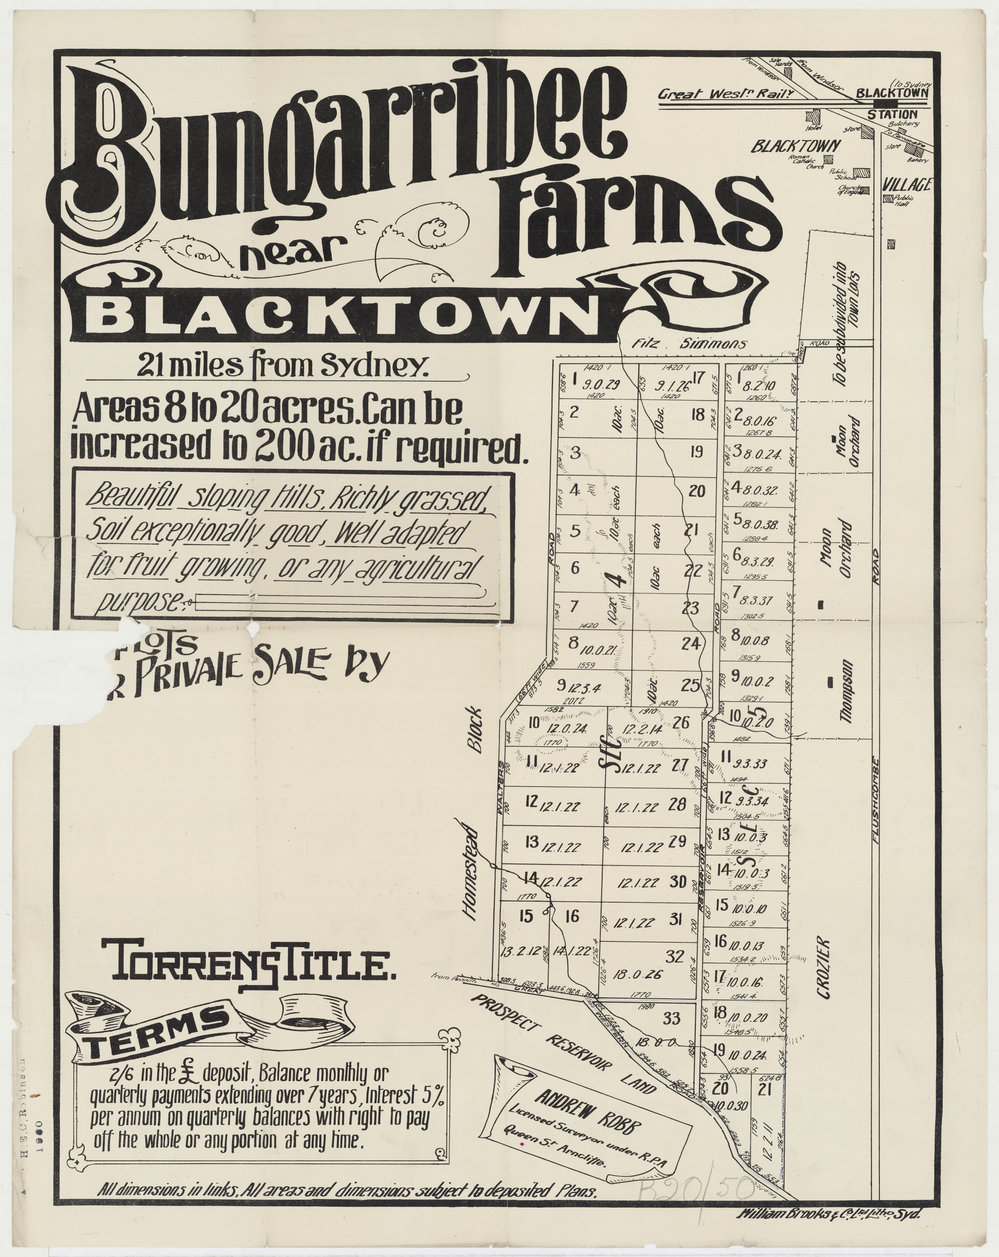 Bungarribee
near Farms
BLACKTOWN
21 miles from Sydney.
Areas 8 to 20 acres. Can be
increased to 200 ac. if required.
Beautiful sloping Hills, Richly grassed,
Soil exceptionally good, Well adapted
for fruit growing, or any agricultural
purpose.
LOTS
PRIVATE SALE by
TORRENS TITLE.
TERMS
2/6 in the £ deposit, Balance monthly or
quarterly payments extending over 7 years, Interest 5%
per annum on quarterly balances with right to pay
off the whole or any portion at any time.
All dimensions in links. All areas and dimensions subject to deposited Plans.
William Brooks & Co. Ltd Litho Syd.
H.E.C. Robinson
B20/50
Great Westn. Raily
from Windsor
Sale Yards
(to Sydney
BLACKTOWN
STATION
Hotel
Store
Butchery
Store
Bakery
BLACKTOWN
VILLAGE
Roman Catholic Church
Public School
Church of England
Public Hall
To be subdivided into
Town Lots
Fitz Simmons
ROAD
1 9.0.29
9.1.26 17
1 8.2.10
2 10ac.
10ac. 18
2 8.0.16
Moon
Orchard
3
19
3 8.0.24.
4 each
20
4 8.0.32.
5 10ac each
each 21
5 8.0.38.
Moon
Orchard
ROAD
ROAD
6
10ac 22
6 8.3.29
4
7 10ac
23
7 8.3.37
ROAD
8 10.0.21
24
8 10.0.8
9 12.3.4
10ac 25
9 10.0.2
Thompson
10 12.0.24
12.2.14 26
10 10.2.0
SEC
SEC 5
11 12.1.22
12.1.22 27
11 9.3.33
12 12.1.22
12.1.22 28
12 9.3.34
13 12.1.22
12.1.22 29
13 10.0.3
14 12.1.22
12.1.22 30
14 10.0.3
15 13.2.12
16 14.1.22
12.1.22 31
15 10.0.10
32 18.0.26
16 10.0.13
17 10.0.16.
33 18 0 0
18 10.0.20
19 10.0.24.
20 10.0.30
21 12.2.11
WALTERS
RESERVOIR
FLUSHCOMBE
CROZIER
Homestead Block
GREAT
PROSPECT RESERVOIR LAND
ANDREW ROBB
Licensed Surveyor under R.P.A
Queen St Arncliffe.